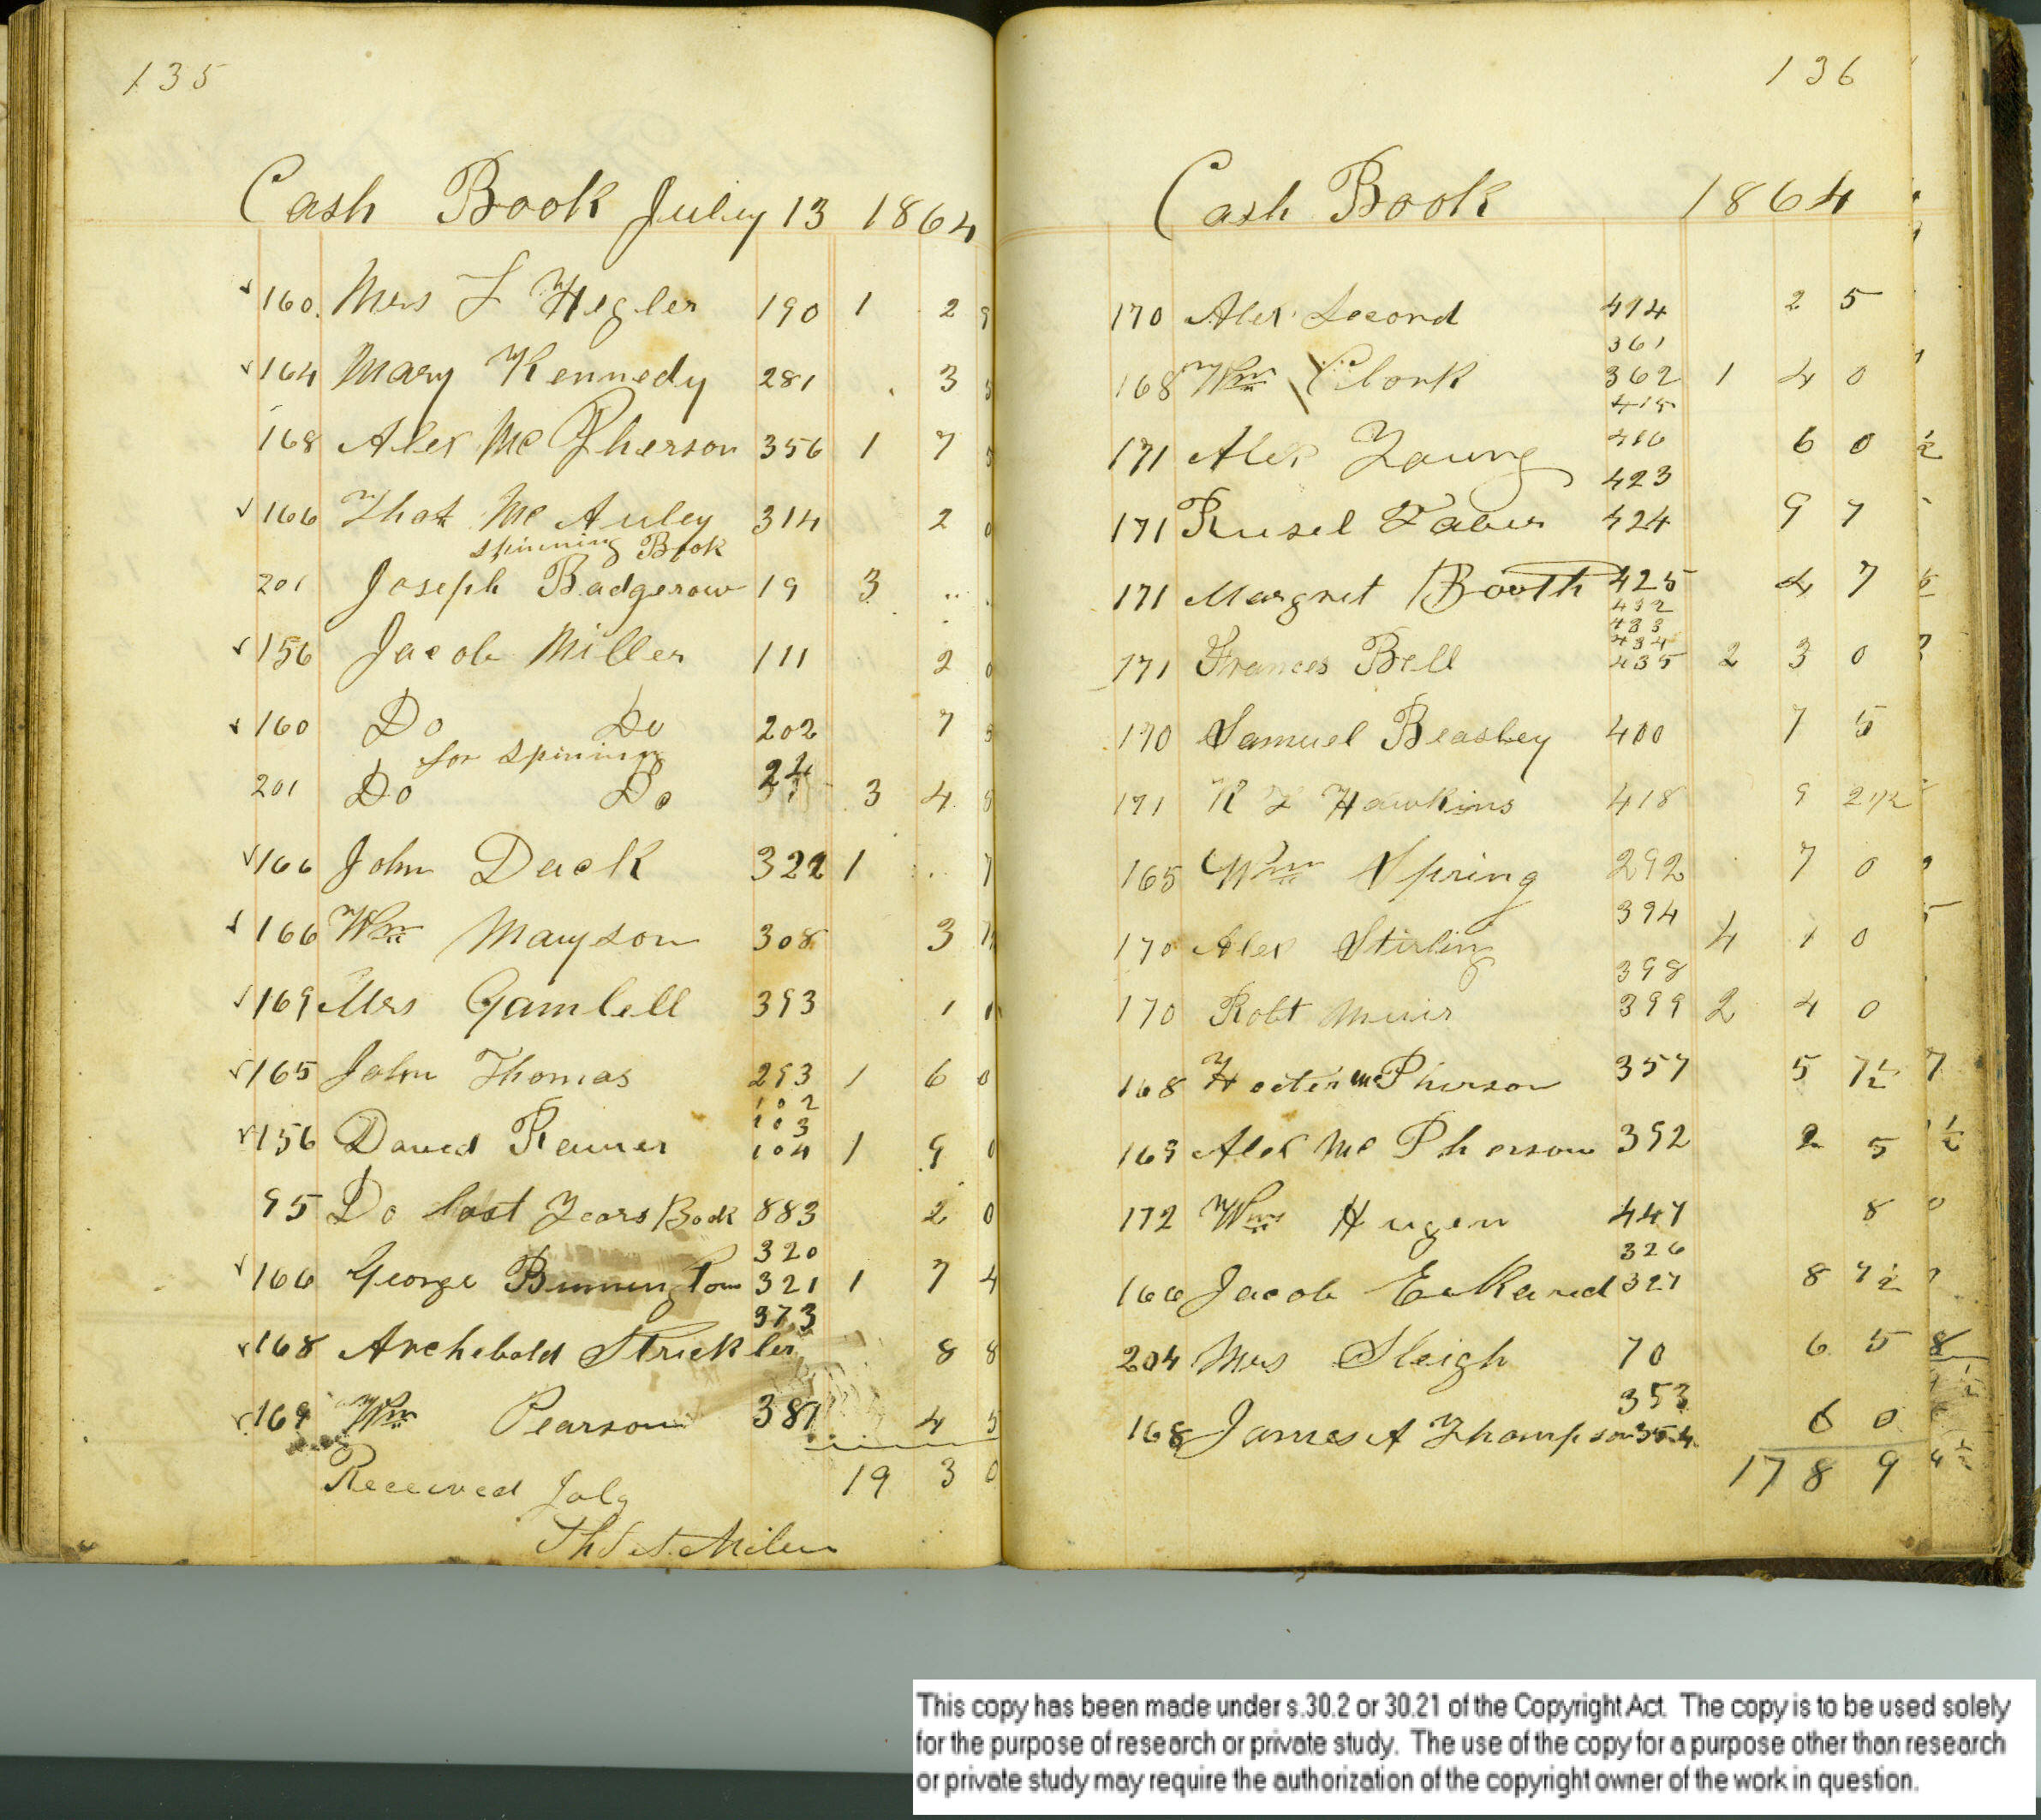 135
Cash Book July 13 1864
160. Mrs L Hegler 190 1 2 9
164 Mary Kennedy 281 3 5
168 Alex Mc Pherson 356 1 7 5
166 Thos Mc Auley 314 2 0
spinning Book
201 Joseph Badgerow 19 3 ..
156 Jacob Miller 111 2 0
160 Do Do 202 7 5
for spining
201 Do Do 24 3 4 5
166 John Dack 322 1 . 7
166 Wm Mayson 308 3
169 Mrs Gambell 393 1
165 John Thomas 293 1 6 0
102
103
156 David Ramer 104 1 9 0
95 Do last Years Book 883 2 0
320
166 George 321 1 7 4
373
168 Archebald Strickler 8 8
169 Wm Pearson 387 4 5
Received 19 3 0
136
Cash Book 1864
170 Alex Secord 414 2 5
361
168 Wm Clark 362 1 4 0
415
171 Alex Young 416 6 0
423
171 Rusel Taber 424 9 7
171 Margret Booth 425 4 7
432
433
434
171 Frances Bell 435 2 3 0
170 Samuel Beasley 400 7 5
171 Hawkins 418 9 2 1/2
165 Wm Spring 292 7 0
394
170 Alex Stirling 4 1 0
398
170 Robt Muir 399 2 4 0
168 Hocter Mc Pherson 357 5 7 1/2
169 Alex Mc Pherson 392 2 5
172 Wm Hugen 447 8
326
166 Jacob Eckard 327 8 7 1/2
204 Mrs Sleigh 70 6 5
353
168 James A Thompson 354 6 0
17 8 9
This copy has been made under s.30.2 or 30.21 of the Copyright Act. The copy is to be used solely
for the purpose of research or private study. The use of the copy for a purpose other than research
or private study may require the authorization of the copyright owner of the work in question.